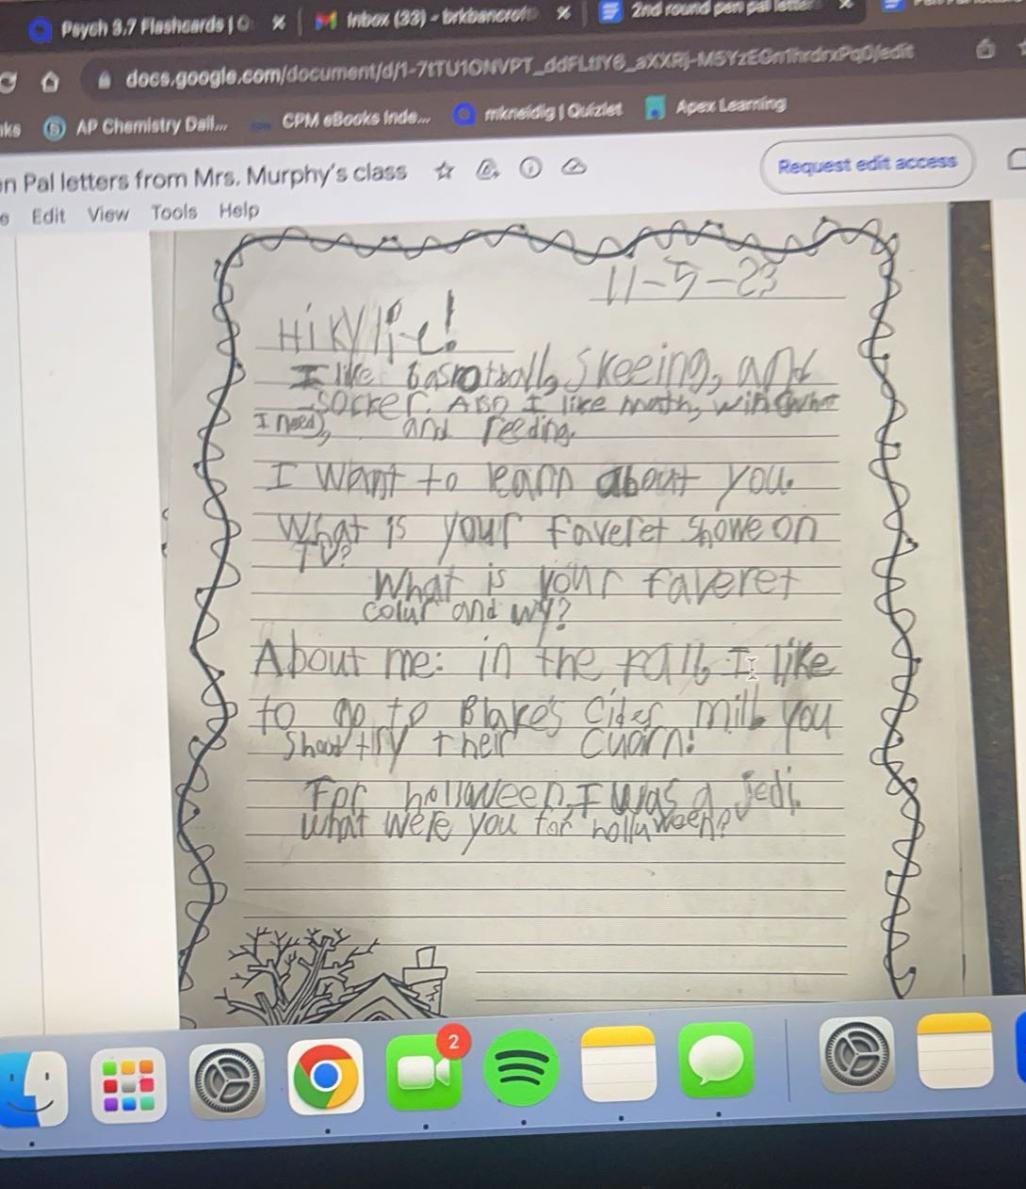 Psych 3.7 Flashcards | Q
Inbox (33) -
2nd round pen pal letter
docs.google.com/document/d/
AP Chemistry Dail...
CPM eBooks Inde...
mkneidig | Quizlet
Apex Learning
n Pal letters from Mrs. Murphy's class
Request edit access
e Edit View Tools Help
11-5-23
Hi Kylie!
I like basrotball, Skeeing, and
socker. Also I like math, win (what
I need), and reeding.
I want to learn about you.
What is your faveret showe on
TV?
What is your faveret
colur and wy?
About me: in the fall, I like
to go to Blake's Cider mill. you
shoud try their cuorn!
For hollaween, I was a jedi.
what were you for hollaween?
2